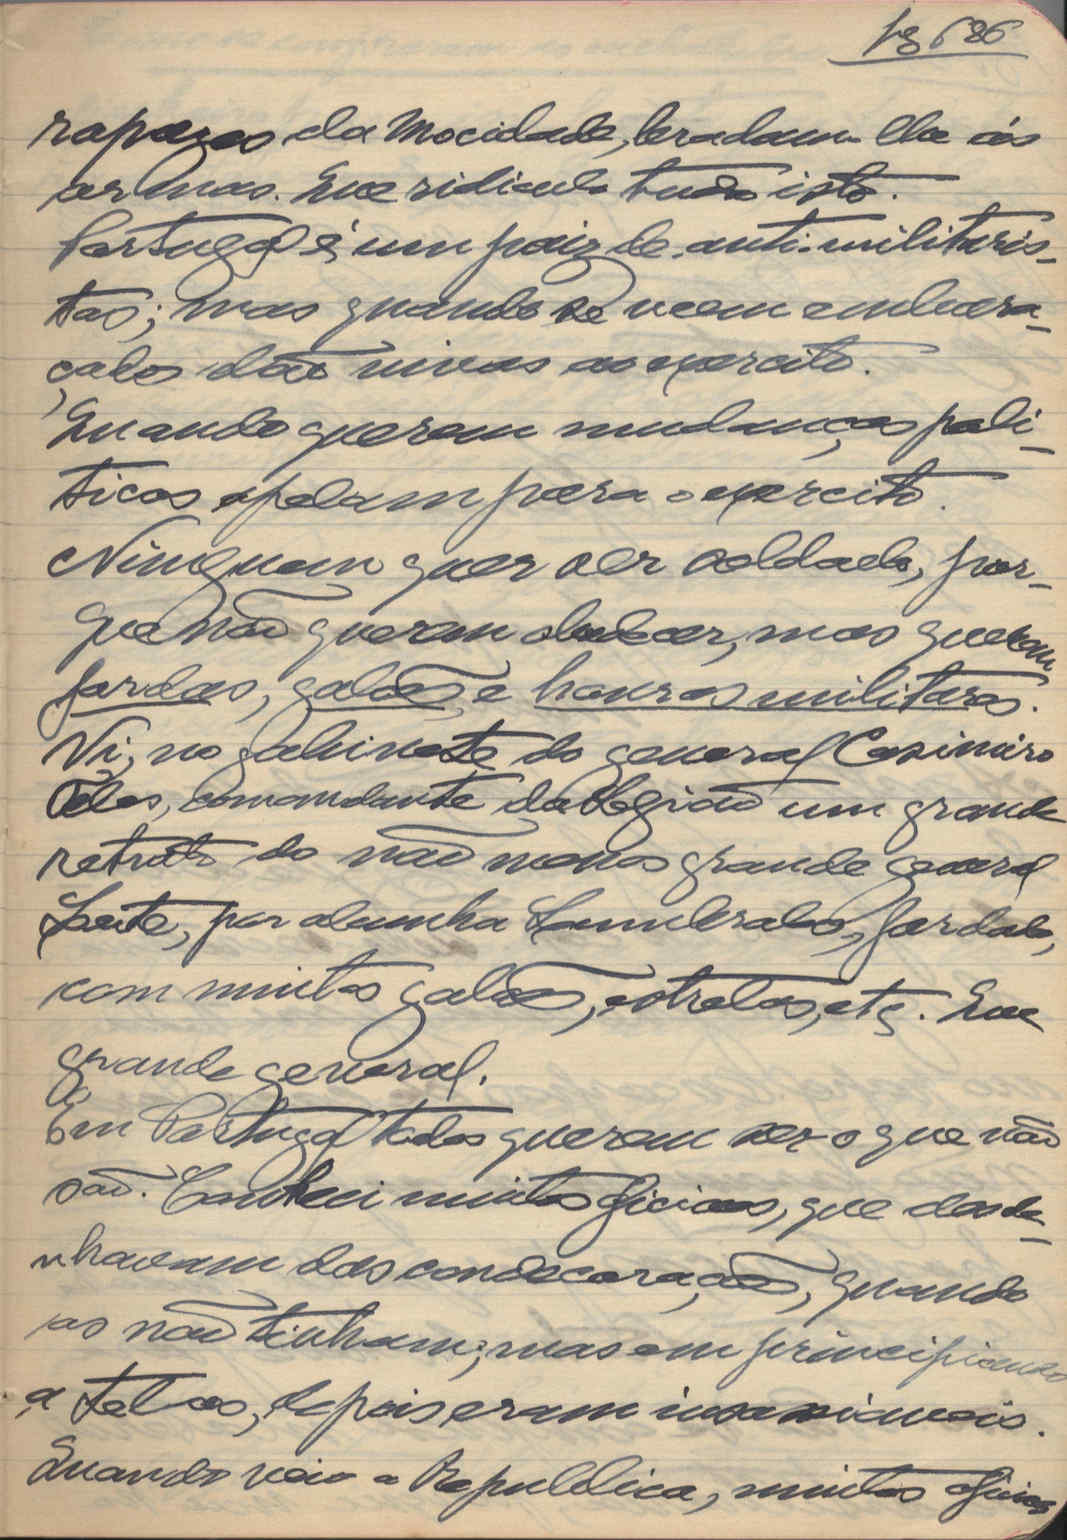 pg 686
rapazes da Mocidade, bradam-lhe ás
armas. Que ridiculo tudo isto.
Portugal é um paiz de anti-militaris-
tas; mas quando se veem embara-
çados dão vivas ao exercito.
Quando querem mudanças poli-
ticas apelam para o exercito.
Ninguem quer ser soldado, por-
que não querem obedecer, mas querem
fardas, galões e honras militares.
Vi, no gabinete do general Casimiro
Teles, comandante da Legião um grande
retrato do não menos grande general
Leite, por alcunha Lumbrales, fardado,
com muitos galões, estrelas, etc. Que
grande general.
Em Portugal todos querem ser o que não
são. Conheci muitos oficiaes, que desde-
nhavam das condecorações, quando
as não tinham; mas em principiando
a tel-as, depois eram insaciaveis.
Quando veio a Republica, muitos oficiaes